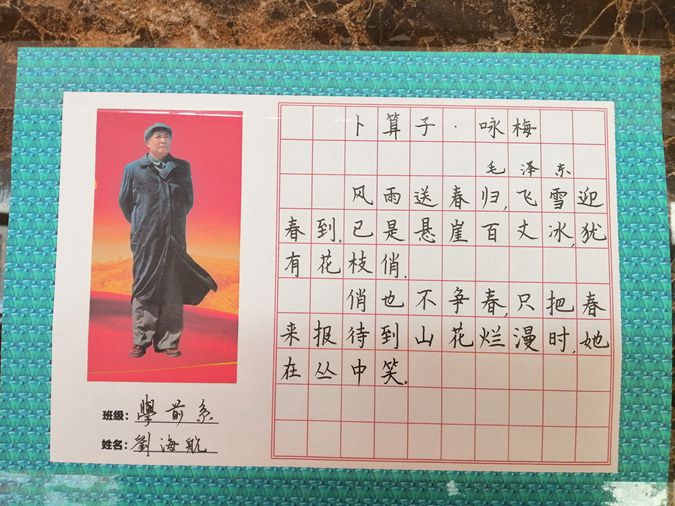 卜算子·咏梅
毛泽东
风雨送春归,飞雪迎
春到.已是悬崖百丈冰,犹
有花枝俏.
俏也不争春,只把春
来报.待到山花烂漫时,她
在丛中笑.
班级:學前系
姓名:劉海航